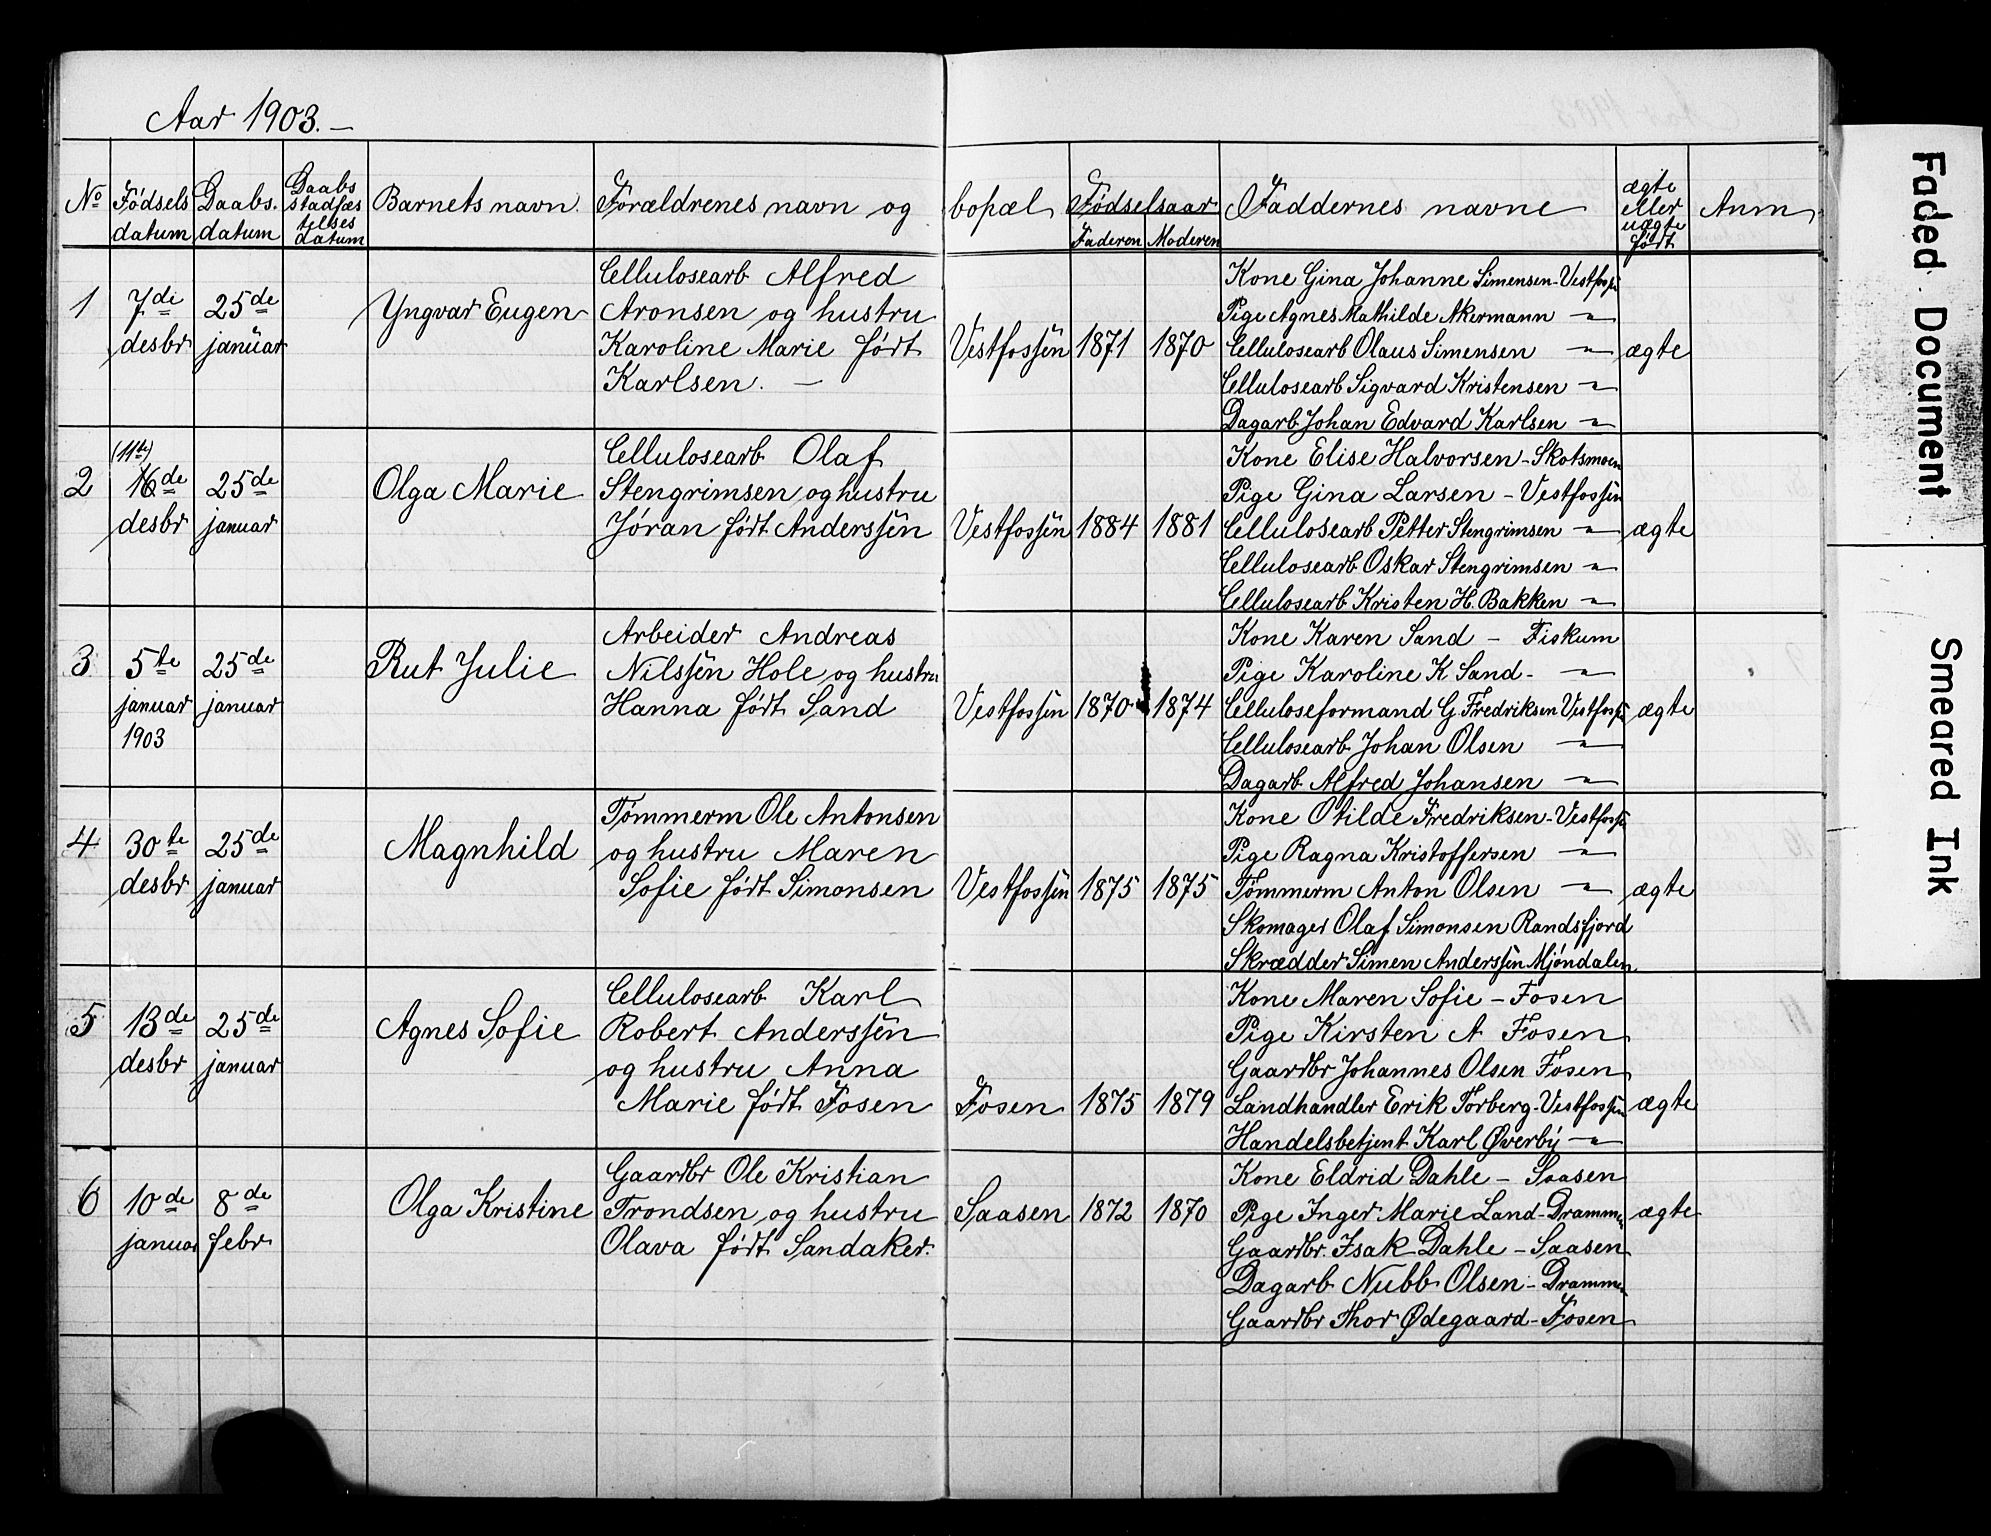 Aar 1903. —
No
Fødsels datum
Daabs. datum
Daabs stadfæs telses datum
Barnets navn.
Forældrenes navn og
bopæl
Fødselsaar
Faderen
Moderen
Faddernes navne
ægte eller uægte født
Anm
1
7di
desbr
25de
januar
Yngvar Eugen
Cellulosearb Alfred
Aronsen og hustru
Karoline Marie født
Karlsen. —
Vestfossen
1871
1870
Kone Gina Johanne Simensen - Vestfossen
Pige Agnes Mathilde Akermann — " —
Cellulosearb Olaus Simensen — " —
Cellulosearb Sigvard Kristensen — " —
Dagarb Johan Edvard Karlsen — " —
ægte
2
(11te)
16de
desbr
25de
januar
Olga Marie
Cellulosearb Olaf
Stengrimsen og hustru
Jøran født Anderssen
Vestfossen
1884
1881
Kone Elise Halvorsen - Skotsmoen
Pige Gina Larsen - Vestfossen
Cellulosearb Petter Stengrimsen — " —
Cellulosearb Oskar Stengrimsen — " —
Cellulosearb Kristen H. Bakken — " —
ægte
3
5te
januar
1903
25de
januar
Rut Julie
Arbeider Andreas
Nilssen Hole og hustru
Hanna født Sand
Vestfossen
1870
1874
Kone Karen Sand - Fiskum
Pige Karoline K Sand - — " —
Celluloseformand G. Fredriksen Vestfossen
Cellulosearb Johan Olsen — " —
Dagarb Alfred Johansen — " —
ægte
4
30te
desbr
25de
januar
Magnhild
Tømmerm Ole Antonsen
og hustru Maren
Sofie født Simonsen
Vestfossen
1875
1875
Kone Otilde Fredriksen - Vestfossen
Pige Ragna Kristoffersen — " —
Tømmerm Anton Olsen — " —
Skomager Olaf Simonsen Randsfjord
Skrædder Simen Anderssen Mjøndalen
ægte
5
13de
desbr
25de
januar
Agnes Sofie
Cellulosearb Karl
Robert Anderssen
og hustru Anna
Marie født Fosen
Fosen
1875
1879
Kone Maren Sofie - Fosen
Pige Kirsten A Fosen
Gaardbr Johannes Olsen Fosen
Landhandler Erik Torberg - Vestfossen
Handelsbetjent Karl Øverby — " —
ægte
6
10de
januar
8de
febr
Olga Kristine
Gaardbr Ole Kristian
Trondsen og hustru
Olava født Sandaker.
Saasen
1872
1870
Kone Eldrid Dahle - Saasen
Pige Inger Marie Land - Drammen
Gaardbr. Isak Dahle - Saasen
Dagarb Nubb Olsen - Drammen
Gaardbr Thor Ødegaard - Fosen
ægte
Faded Document
Smeared Ink